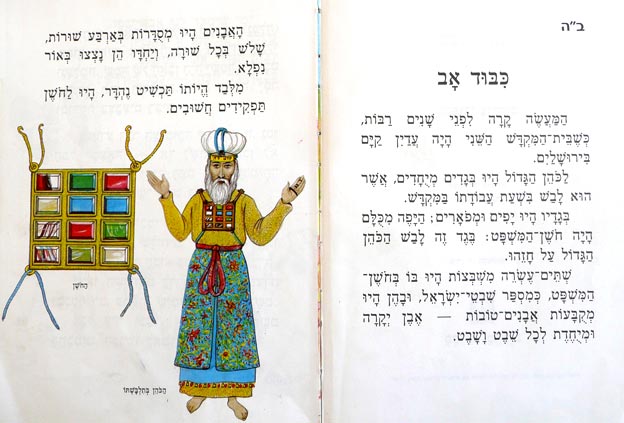 ב"ה
כִּבּוּד אָב
הַמַּעֲשֶׂה קָרָה לִפְנֵי שָׁנִים רַבּוֹת,
כְּשֶׁבֵּית־הַמִּקְדָּשׁ הַשֵּׁנִי הָיָה עֲדַיִן קַיָּם
בִּירוּשָׁלַיִם.
לַכֹּהֵן הַגָּדוֹל הָיוּ בְּגָדִים מְיֻחָדִים, אֲשֶׁר
הוּא לָבַשׁ בִּשְׁעַת עֲבוֹדָתוֹ בַּמִּקְדָּשׁ.
בְּגָדָיו הָיוּ יָפִים וּמְפֹאָרִים; הַיָּפֶה מִכֻּלָּם
הָיָה חֹשֶׁן־הַמִּשְׁפָּט: בֶּגֶד זֶה לָבַשׁ הַכֹּהֵן
הַגָּדוֹל עַל חָזֵהוּ.
שְׁתֵּים־עֶשְׂרֵה מִשְׁבְּצוֹת הָיוּ בּוֹ בְּחֹשֶׁן־
הַמִּשְׁפָּט, כְּמִסְפַּר שִׁבְטֵי־יִשְׂרָאֵל, וּבָהֶן הָיוּ
מְקֻבָּעוֹת אֲבָנִים־טוֹבוֹת — אֶבֶן יְקָרָה
וּמְיֻחֶדֶת לְכָל שֵׁבֶט וָשֵׁבֶט.
הָאֲבָנִים הָיוּ מְסֻדָּרוֹת בְּאַרְבַּע שׁוּרוֹת,
שָׁלֹשׁ בְּכָל שׁוּרָה, וְיַחְדָּו הֵן נָצְצוּ בְּאוֹר
נִפְלָא.
מִלְּבַד הֱיוֹתוֹ תַּכְשִׁיט נֶהְדָּר, הָיוּ לַחֹשֶׁן
תַּפְקִידִים חֲשׁוּבִים.
הַחֹשֶׁן
הַכֹּהֵן בְּתִלְבָּשְׁתּוֹ